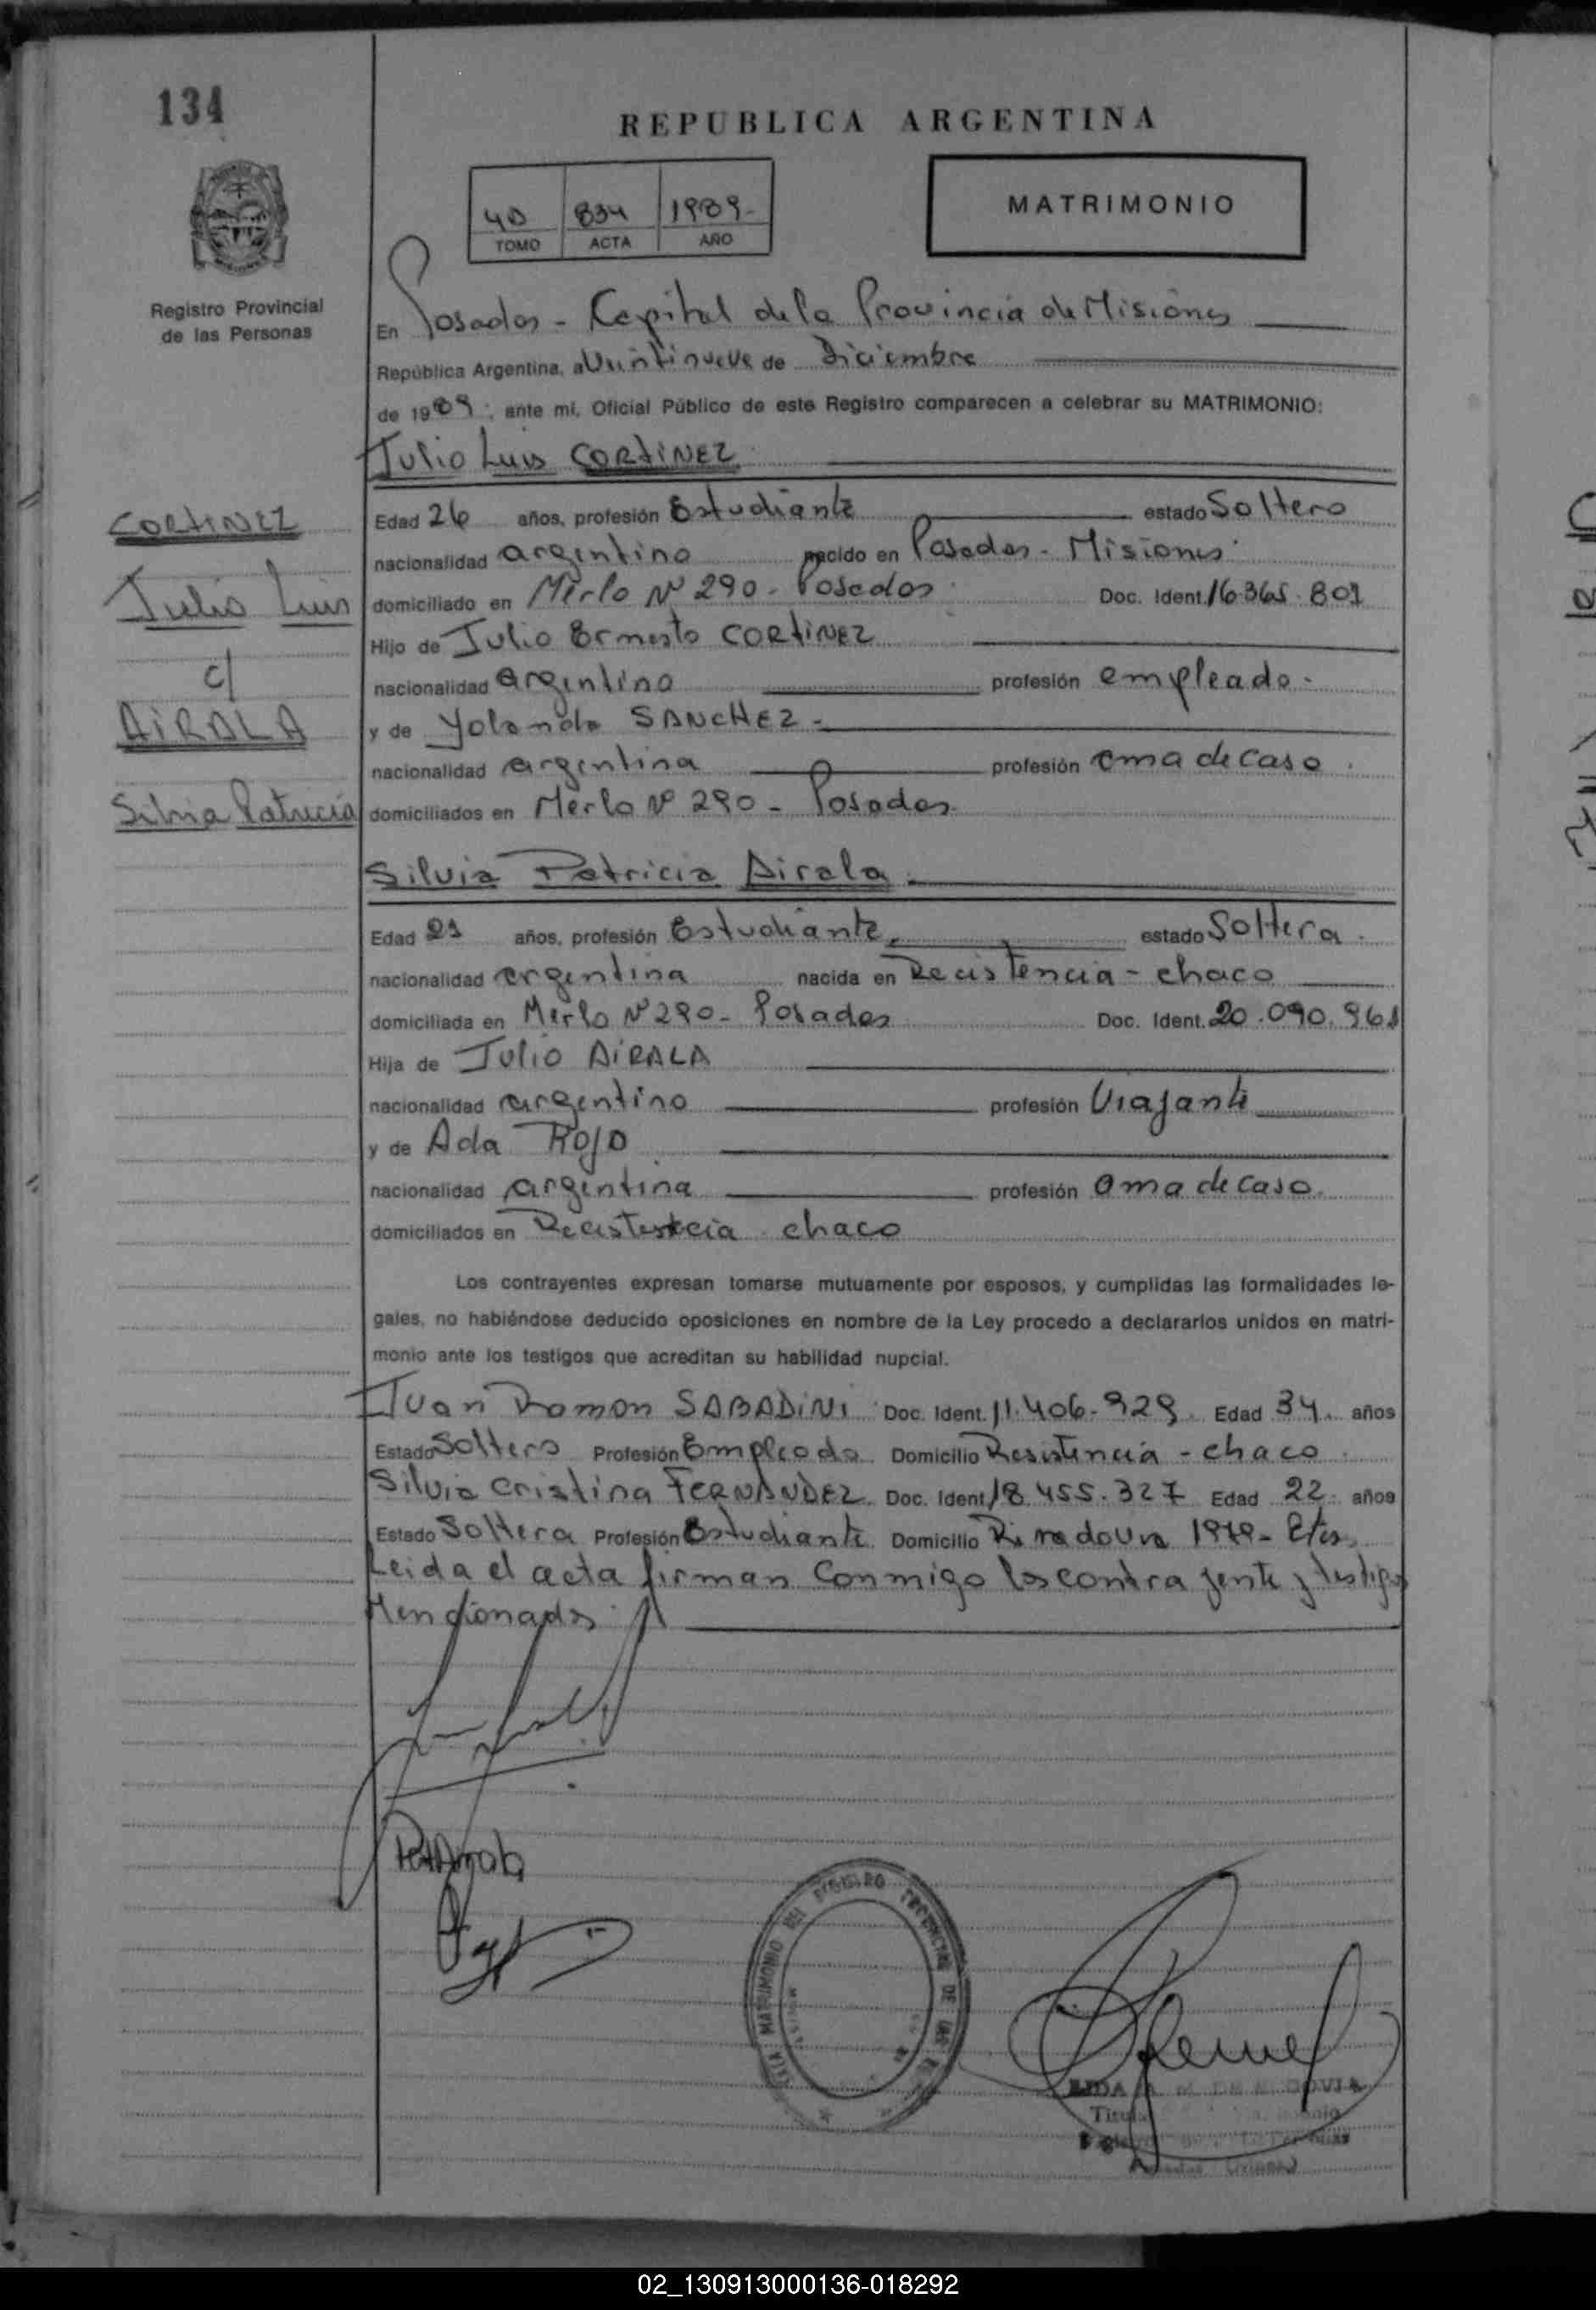 134
REPUBLICA ARGENTINA
40 834 1989-
TOMO ACTA AÑO
MATRIMONIO
Registro Provincial
de las Personas
En Posadas - Capital de la Provincia de Misiones
República Argentina, a Veintinueve de Diciembre
de 1989; ante mí, Oficial Público de este Registro comparecen a celebrar su MATRIMONIO:
Julio Luis CORTINEZ
CORTINEZ
Julio Luis
c/
AIRALA
Silvia Patricia
Edad 26 años, profesión Estudiante estado Soltero
nacionalidad argentino nacido en Posadas - Misiones
domiciliado en Merlo Nº 290 - Posadas Doc. Ident. 16.365.801
Hijo de Julio Ernesto CORTINEZ
nacionalidad argentino profesión empleado.
y de Yolanda SANCHEZ -
nacionalidad argentina profesión ama de casa.
domiciliados en Merlo Nº 290 - Posadas
Silvia Patricia Airala
Edad 21 años, profesión Estudiante estado Soltera.
nacionalidad argentina nacida en Recistencia - chaco
domiciliada en Merlo Nº 290 - Posadas Doc. Ident. 20.090.961
Hija de Julio AIRALA
nacionalidad argentino profesión Viajante
y de Ada ROJO
nacionalidad argentina profesión ama de casa.
domiciliados en Recistencia chaco
Los contrayentes expresan tomarse mutuamente por esposos, y cumplidas las formalidades le-
gales, no habiéndose deducido oposiciones en nombre de la Ley procedo a declararlos unidos en matri-
monio ante los testigos que acreditan su habilidad nupcial.
Juan Ramon SABADINI Doc. Ident. 11.406.929 Edad 34. años
Estado Soltero Profesión Empleado Domicilio Resistencia - chaco.
Silvia Cristina FERNANDEZ Doc. Ident. 18.455.327 Edad 22 años
Estado Soltera Profesión Estudiante Domicilio Rivadavia
Leida el acta firman Conmigo los contrayente y testigos
Mencionados
REGISTRO PROVINCIAL DE LAS
MATRIMONIO
02_130913000136-018292